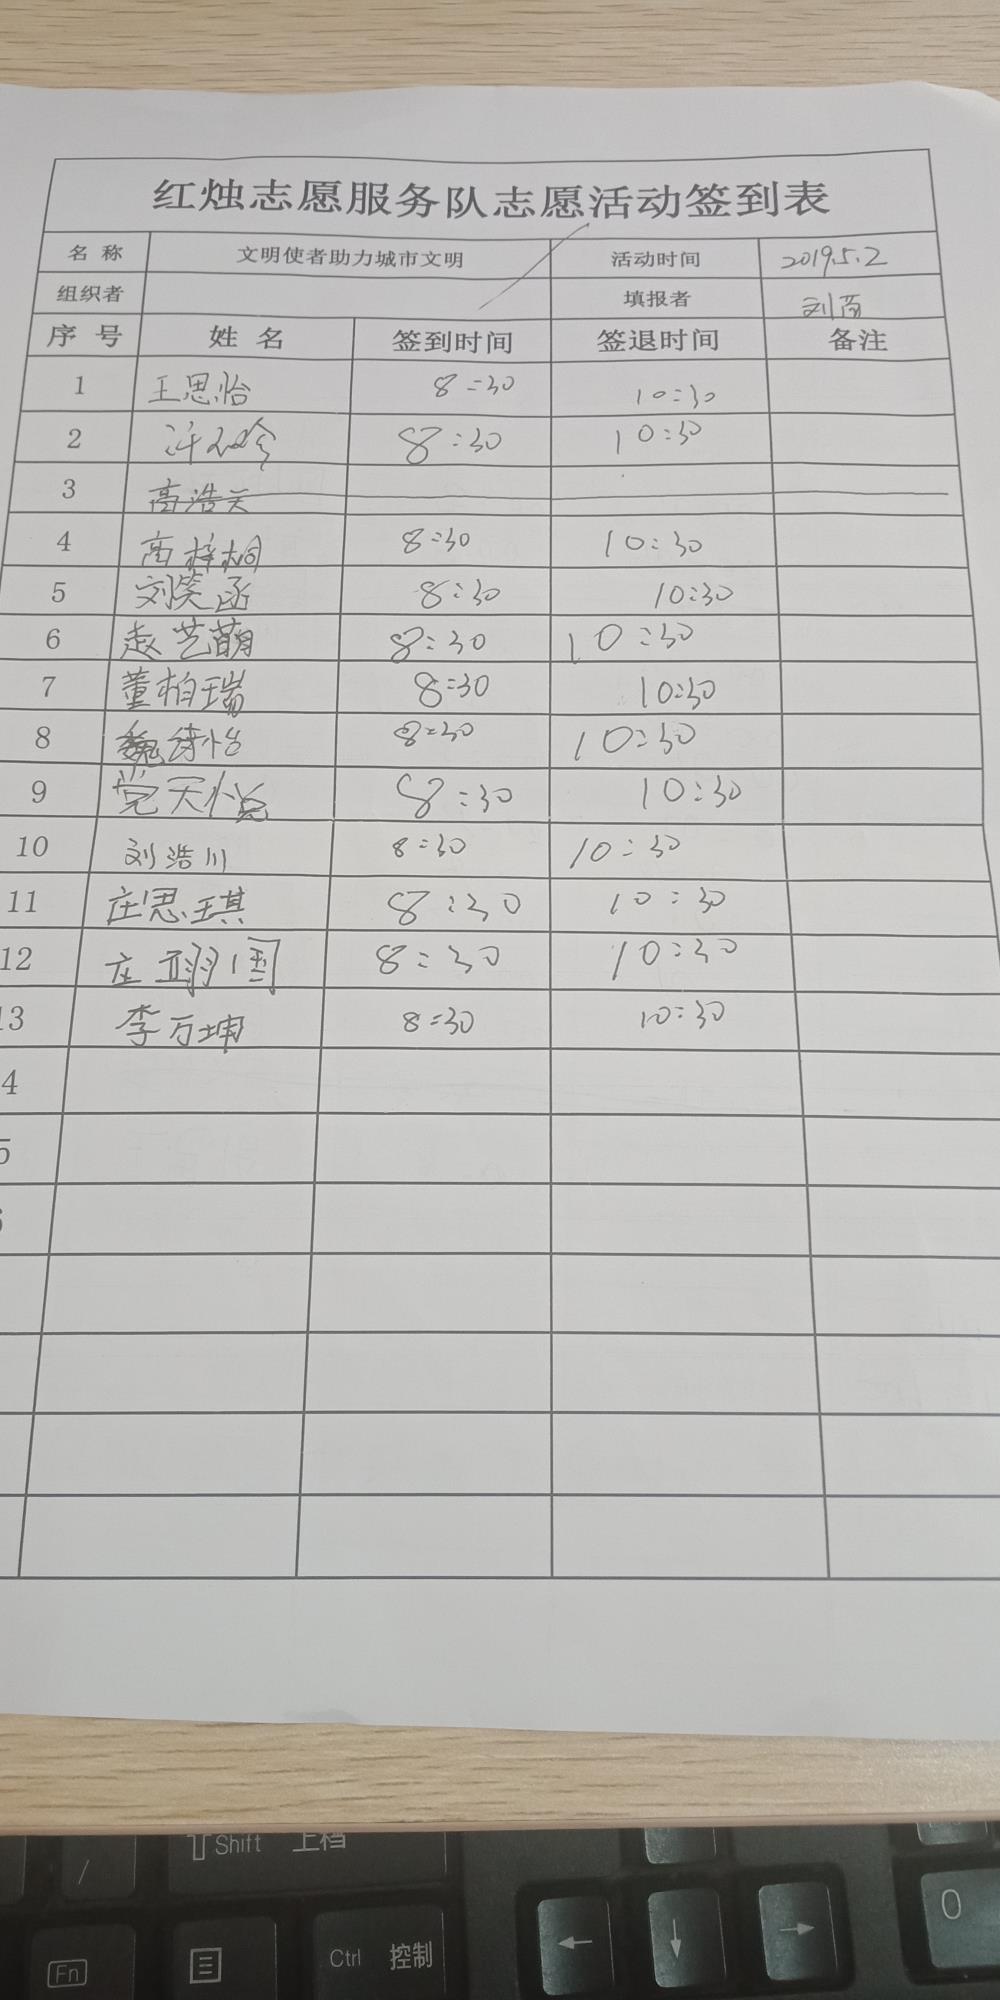 红烛志愿服务队志愿活动签到表
名 称 文明使者助力城市文明 活动时间 2019.5.2
组织者 填报者 刘
序 号 姓 名 签到时间 签退时间 备注
1 王思怡 8:30 10:30
2 8:30 10:30
3 高浩天
4 高梓桐 8:30 10:30
5 刘笑函 8:30 10:30
6 赵艺萌 8:30 10:30
7 董柏瑞 8:30 10:30
8 魏绮怡 8:30 10:30
9 党天悦 8:30 10:30
10 刘浩川 8:30 10:30
11 庄思琪 8:30 10:30
12 庄 8:30 10:30
13 李万坤 8:30 10:30
4
5
/ Shift 上档
Fn Ctrl 控制 ← ↓ → 0